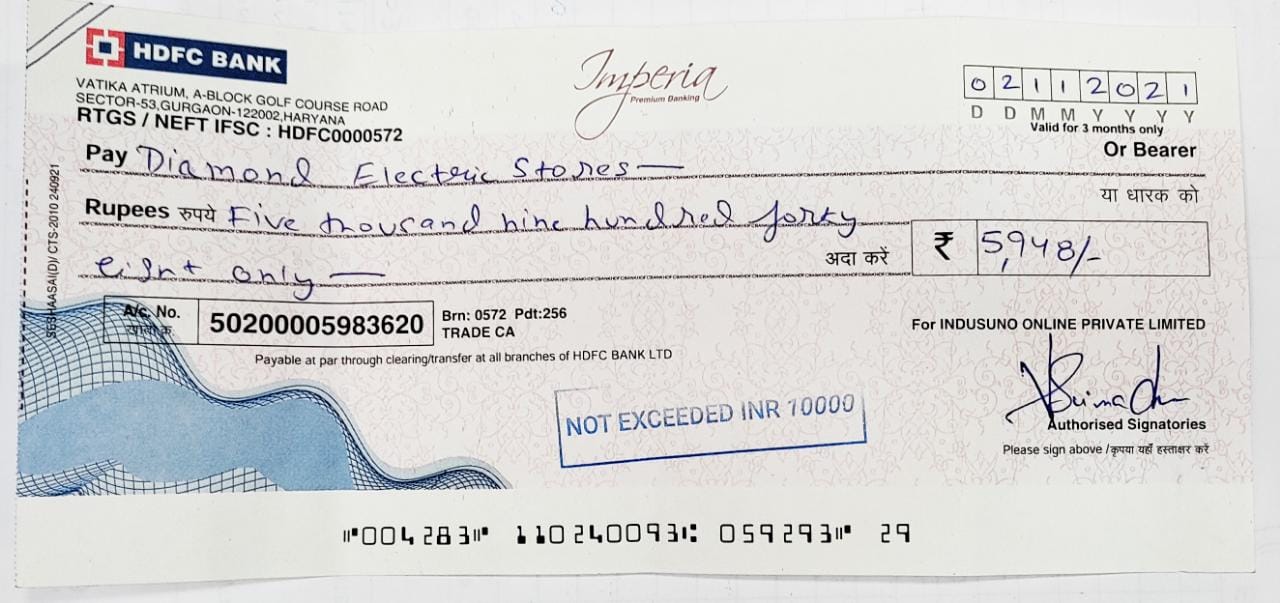 HDFC BANK
VATIKA ATRIUM, A-BLOCK GOLF COURSE ROAD
SECTOR-53,GURGAON-122002,HARYANA
RTGS / NEFT IFSC : HDFC0000572
Imperia
Premium Banking
02112021
D D M M Y Y Y Y
Valid for 3 months only
Pay Diamond Electric Stores
Or Bearer
या धारक को
Rupees रुपये Five thousand nine hundred forty
eight only
अदा करें
₹ 5,948/-
A/c. No. 50200005983620
Brn: 0572 Pdt:256
TRADE CA
Payable at par through clearing/transfer at all branches of HDFC BANK LTD
For INDUSUNO ONLINE PRIVATE LIMITED
NOT EXCEEDED INR 10000
Authorised Signatories
Please sign above /कृपया यहाँ हस्ताक्षर करें
⑈004283⑈ 110240093⑆ 059293⑈ 29
CTS-2010 240921